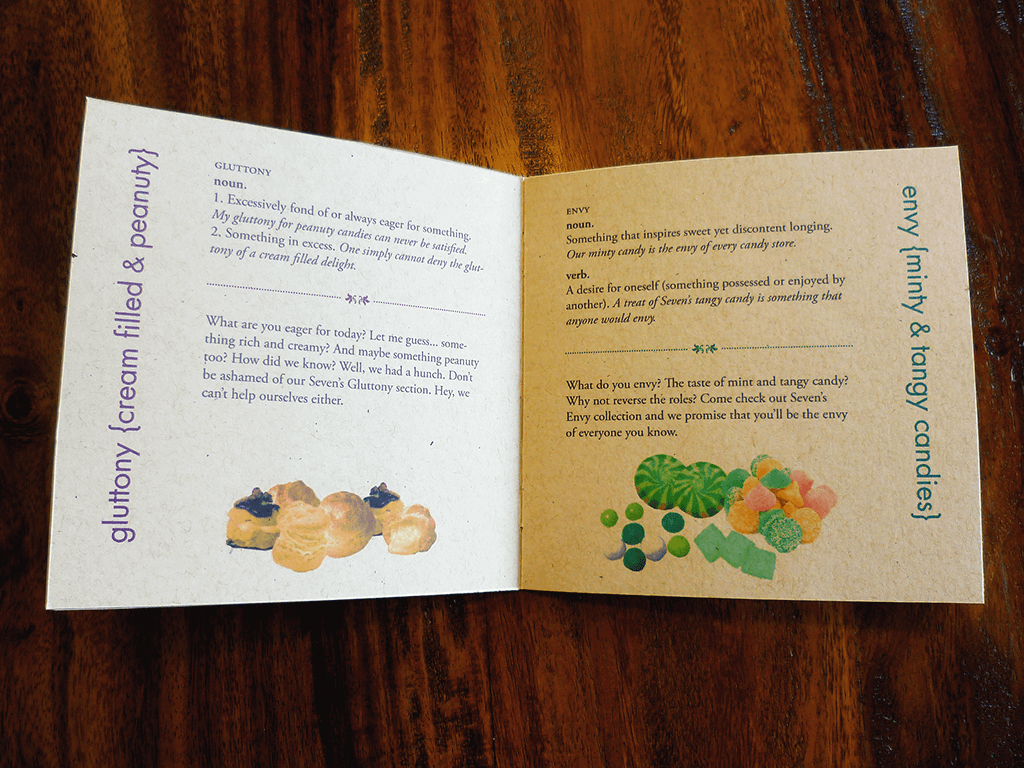 gluttony {cream filled & peanuty}
GLUTTONY
noun.
1. Excessively fond of or always eager for something.
My gluttony for peanuty candies can never be satisfied.
2. Something in excess. One simply cannot deny the glut-
tony of a cream filled delight.
What are you eager for today? Let me guess... some-
thing rich and creamy? And maybe something peanuty
too? How did we know? Well, we had a hunch. Don't
be ashamed of our Seven's Gluttony section. Hey, we
can't help ourselves either.
ENVY
noun.
Something that inspires sweet yet discontent longing.
Our minty candy is the envy of every candy store.
verb.
A desire for oneself (something possessed or enjoyed by
another). A treat of Seven's tangy candy is something that
anyone would envy.
What do you envy? The taste of mint and tangy candy?
Why not reverse the roles? Come check out Seven's
Envy collection and we promise that you'll be the envy
of everyone you know.
envy {minty & tangy candies}